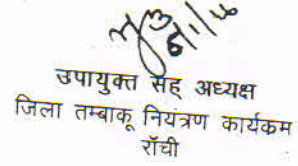 उपायुक्त सह अध्यक्ष
जिला तम्बाकू नियंत्रण कार्यकम
राँची